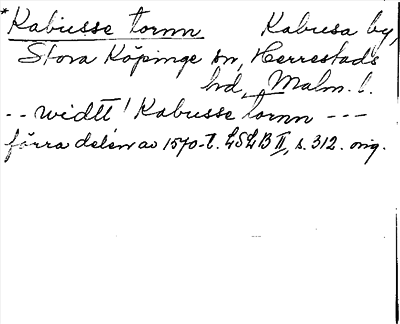 *Kabusse tornn Kabusa by,
Stora Köpinge sn, Herrestads
hd, Malm. l.
-- widtt Kabusse tornn ---
förra delen av 1570-t. LSLB II, s. 312. orig.